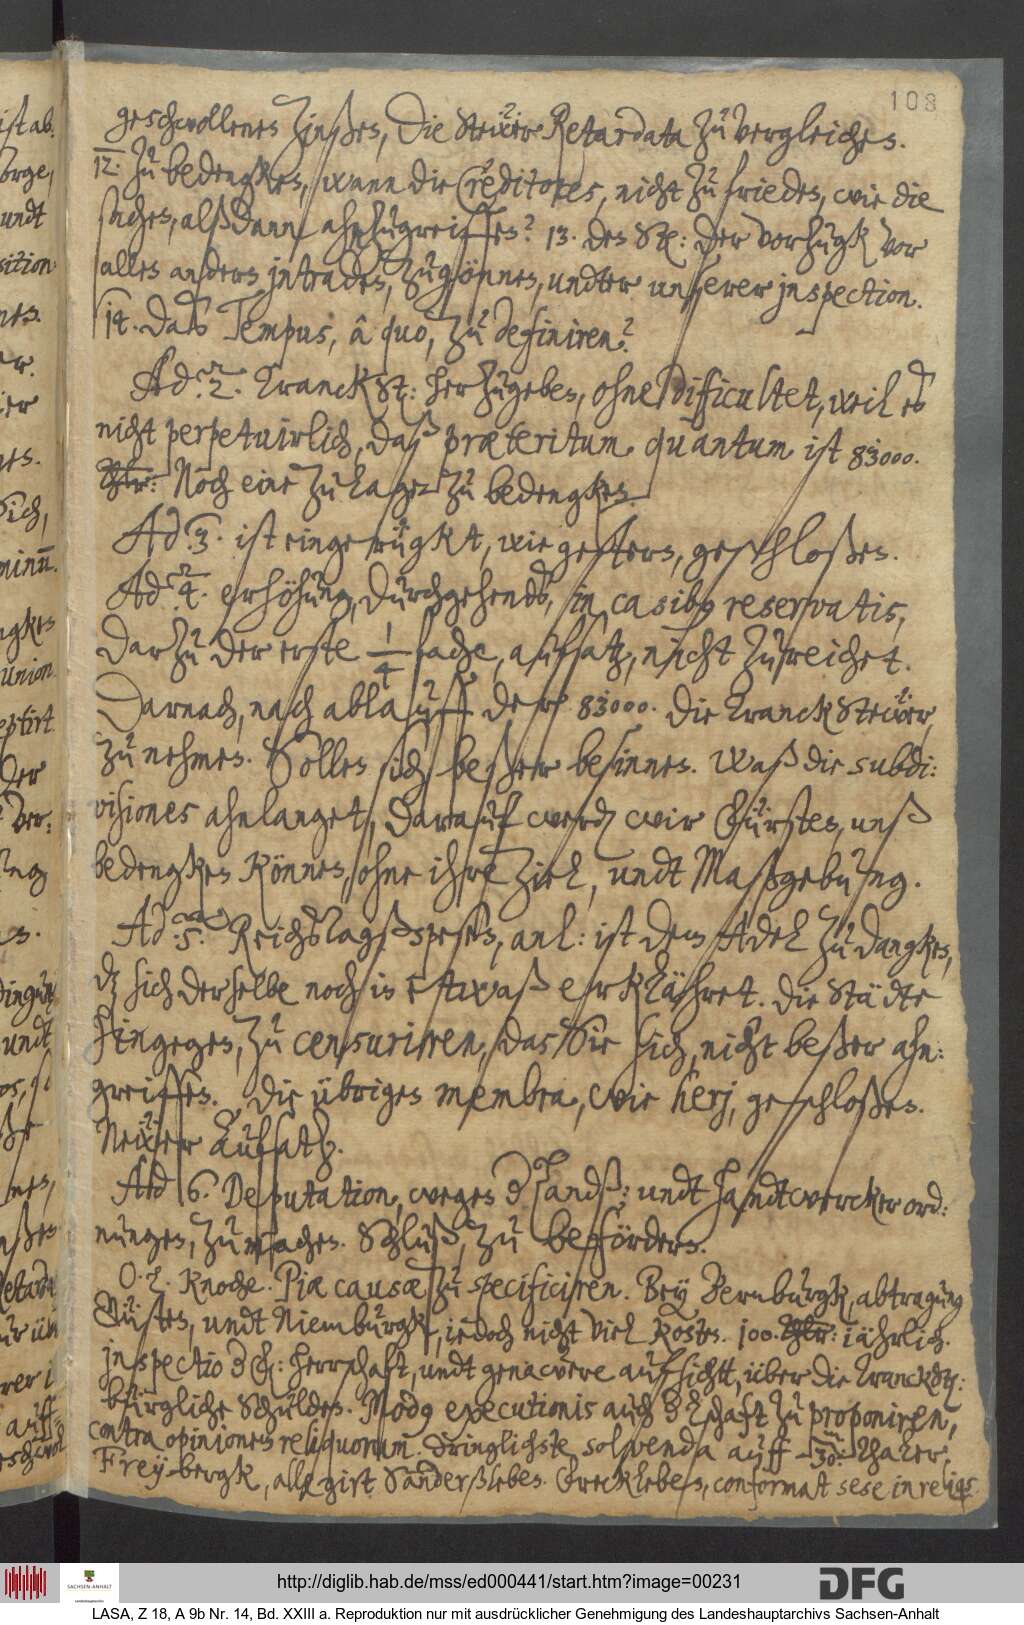 108
geschwollenen Zinßen, die Steüer Retardata zu vergleichen.
12. Zu bedengken, wann die Creditores, nicht zu frieden, wie die
sachen, alßdann ahnzugreiffen? 13. den St: der vorzugk vor
allen andern jntraden, zugönnen, undter unserer jnspection.
14. das Tempus, â quo, zu definiren?
Ad 2. TranckSt: herzugeben, ohne difficultet, weil es
nicht perpetuirlich, daß præteritum quantum ist 83000.
Thlr: Noch eine Zulage zu bedengken.
Ad 3. ist eingerügkt, wie gestern, geschloßen.
Ad 4. erhöhung, durchgehends, in casibus reservatis,
darzu der erste 1/4 fache, aufsatz, nicht zureichet.
Darnach, nach ablauff der 83000. die TranckSteüer,
zu nehmen. Sollen sich beßer besinnen. Waß die subdi:
visiones ahnlanget, darauf werden wir Fürsten, unß
bedengken können, ohne ihre Ziel, undt Maßgebung.
Ad 5. Reichstagßspesen, anl: ist dem Adel zu dangken,
dz sich derselbe noch in etwaß erklähret. die Städte
hingegen, zu censuriren, das Sie sich, nicht beßer ahn:
greiffen. Die übrigen membra, wie herj, geschloßen.
Neüer Aufsatz.
Ad 6. Deputation, wegen d Landß: undt handtwercker ord:
nungen, zu machen. Schluß, zu befördern.
O. L. Knoche. Piæ causæ zu specificiren. Bey Bernburgk, abtragung
undt Niemburgk, iedoch nicht viel kosten. 100. Thlr: iährlich.
jnspectio d: herrschaft, undt genawere aufsichtt, über die TranckSt:
bürgliche Schulden. Modus executionis auch d Lschaft zu proponiren,
contra opiniones reliquorum. dringlichste solvenda auff 30: Thaler,
Freybergk, allegirt Sanderßleben. Greckleben, conformat sese in reliqs.
http://diglib.hab.de/mss/ed000441/start.htm?image=00231
SACHSEN-ANHALT
DFG
LASA, Z 18, A 9b Nr. 14, Bd. XXIII a. Reproduktion nur mit ausdrücklicher Genehmigung des Landeshauptarchivs Sachsen-Anhalt